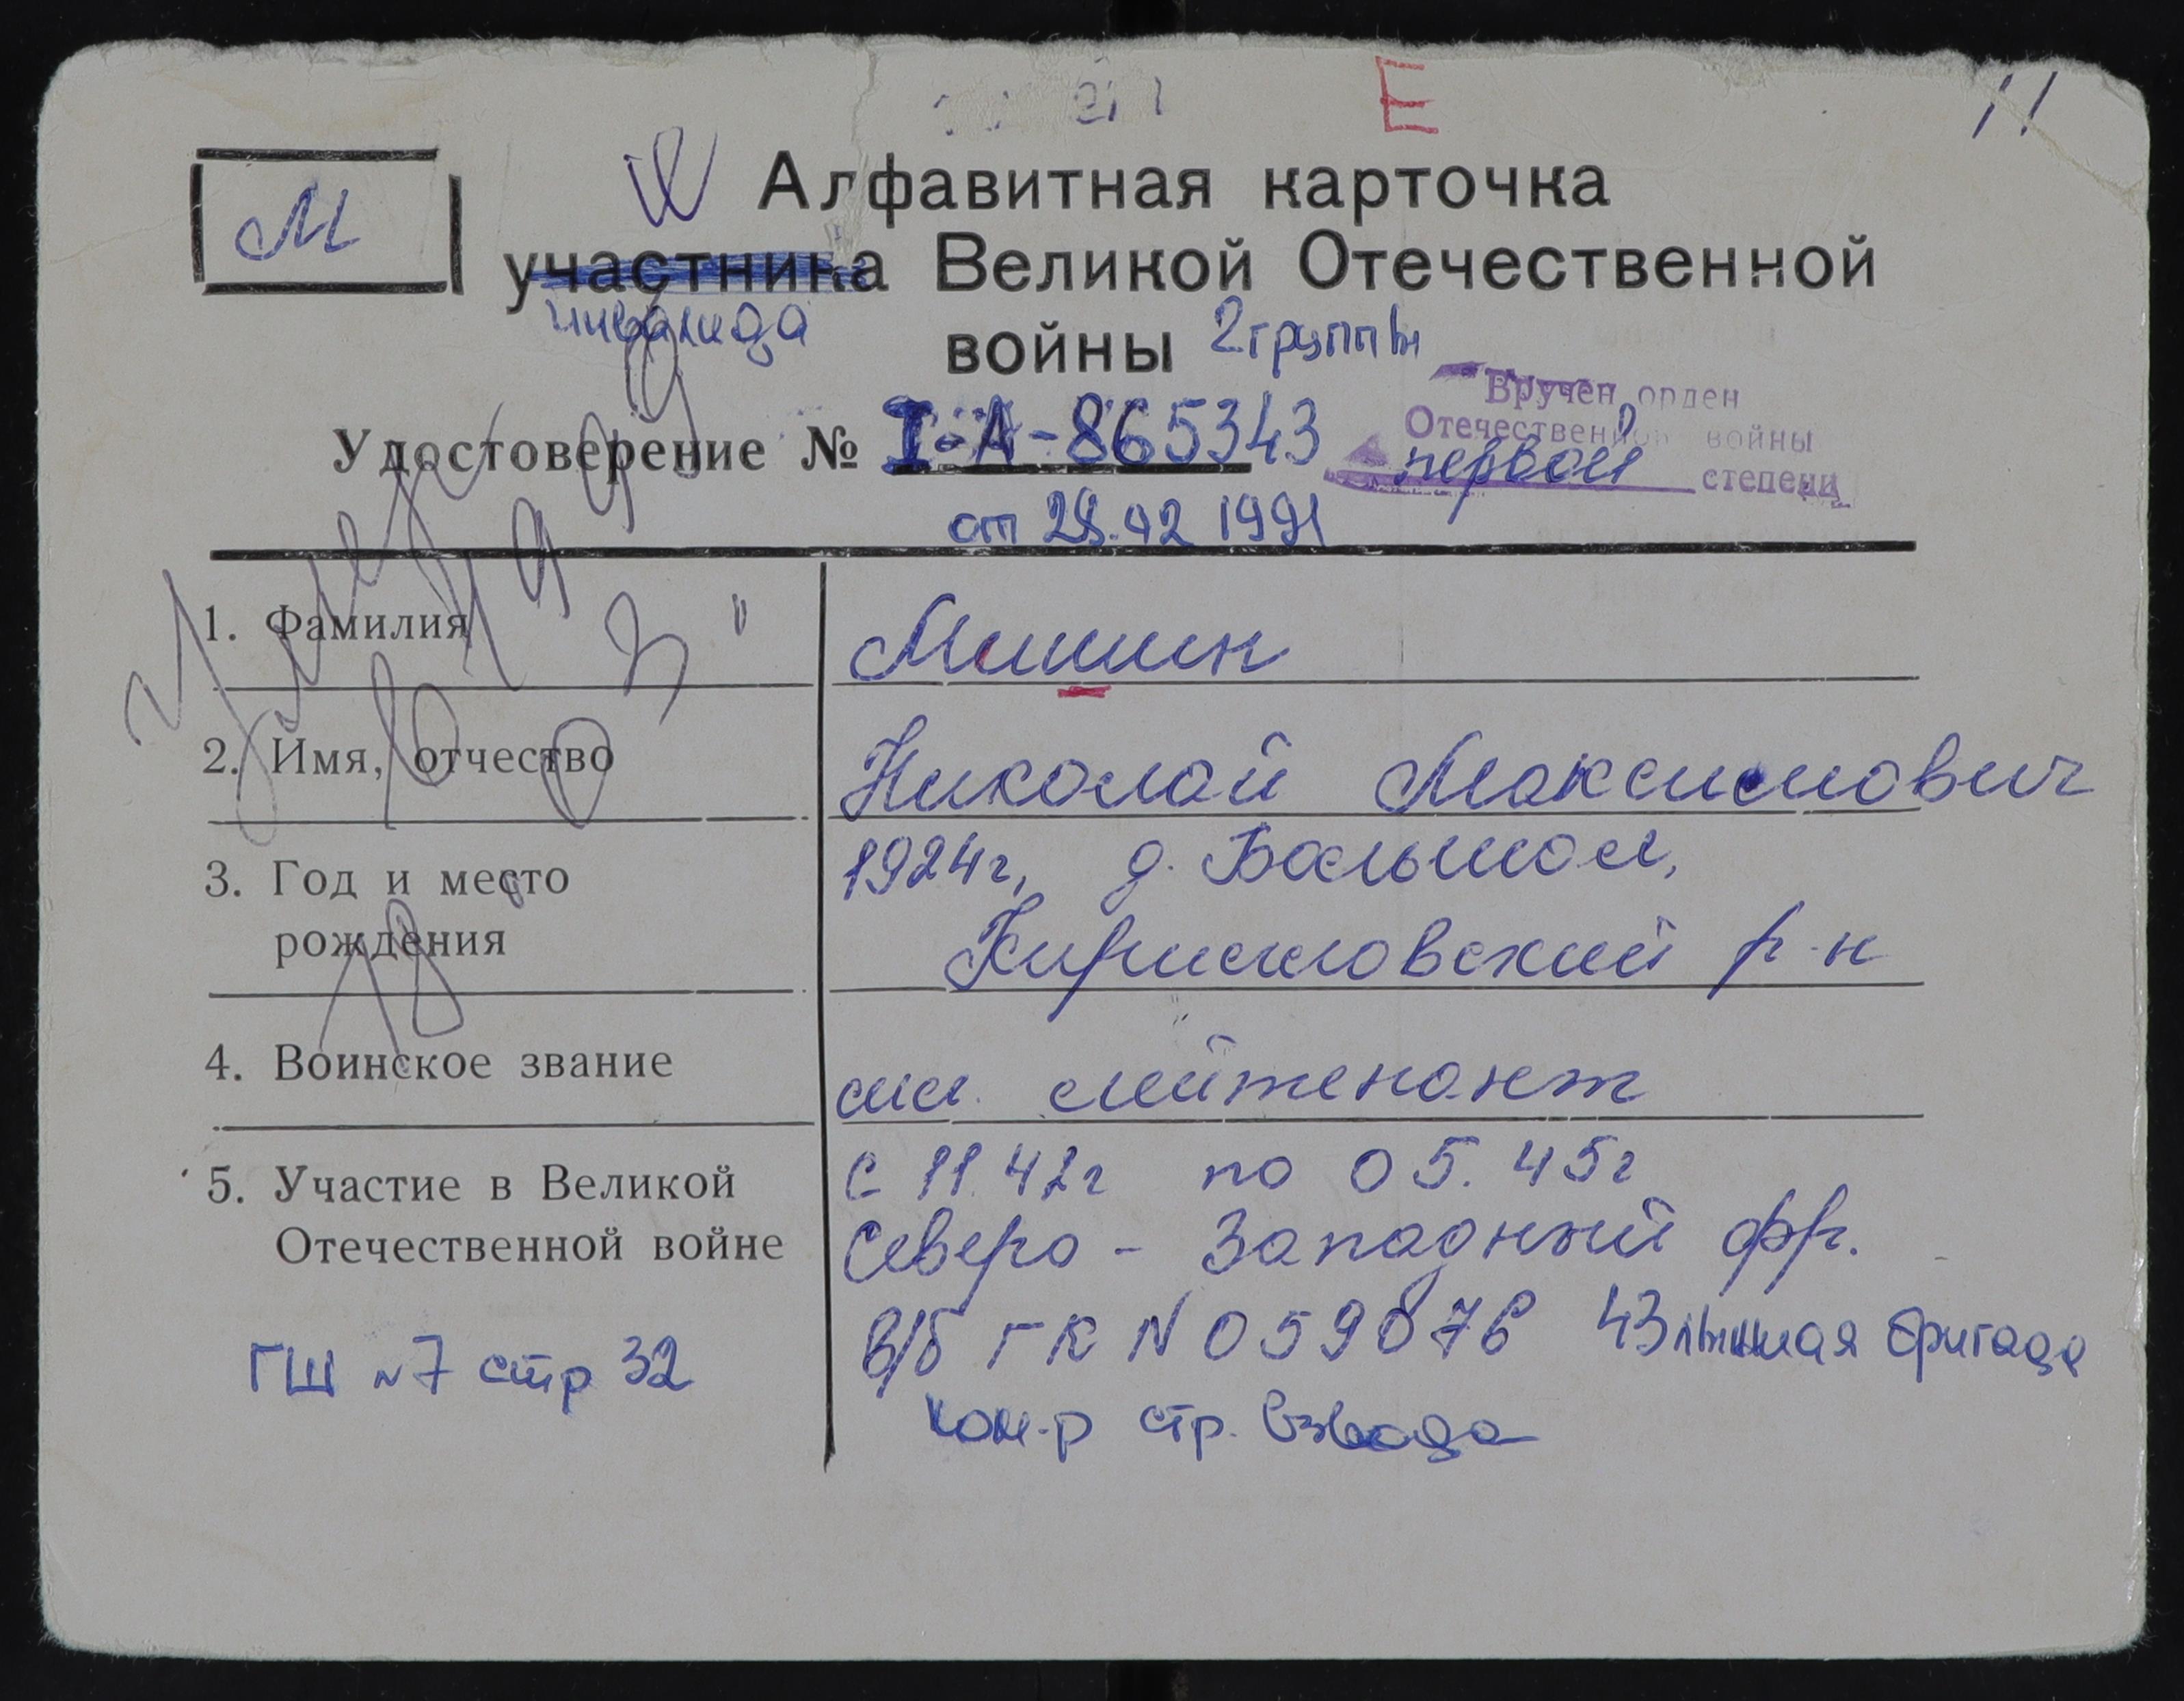 Е
11
М
Алфавитная карточка
участника Великой Отечественной
инвалида
войны 2 группы
Вручен орден
Отечественной войны
первой степени
Удостоверение № I-А-865343
от 28.02 1991
1. Фамилия Мишин
2. Имя, отчество Николай Максимович
3. Год и место рождения 1924г, д.
Кирилловский р-н
4. Воинское звание мл. лейтенант
5. Участие в Великой Отечественной войне с 11.42г по 05.45г
Северо-Западный фр.
в/б ГК N 059876 43 лыжная бригада
ГШ №7 стр 32
ком-р стр. взвода